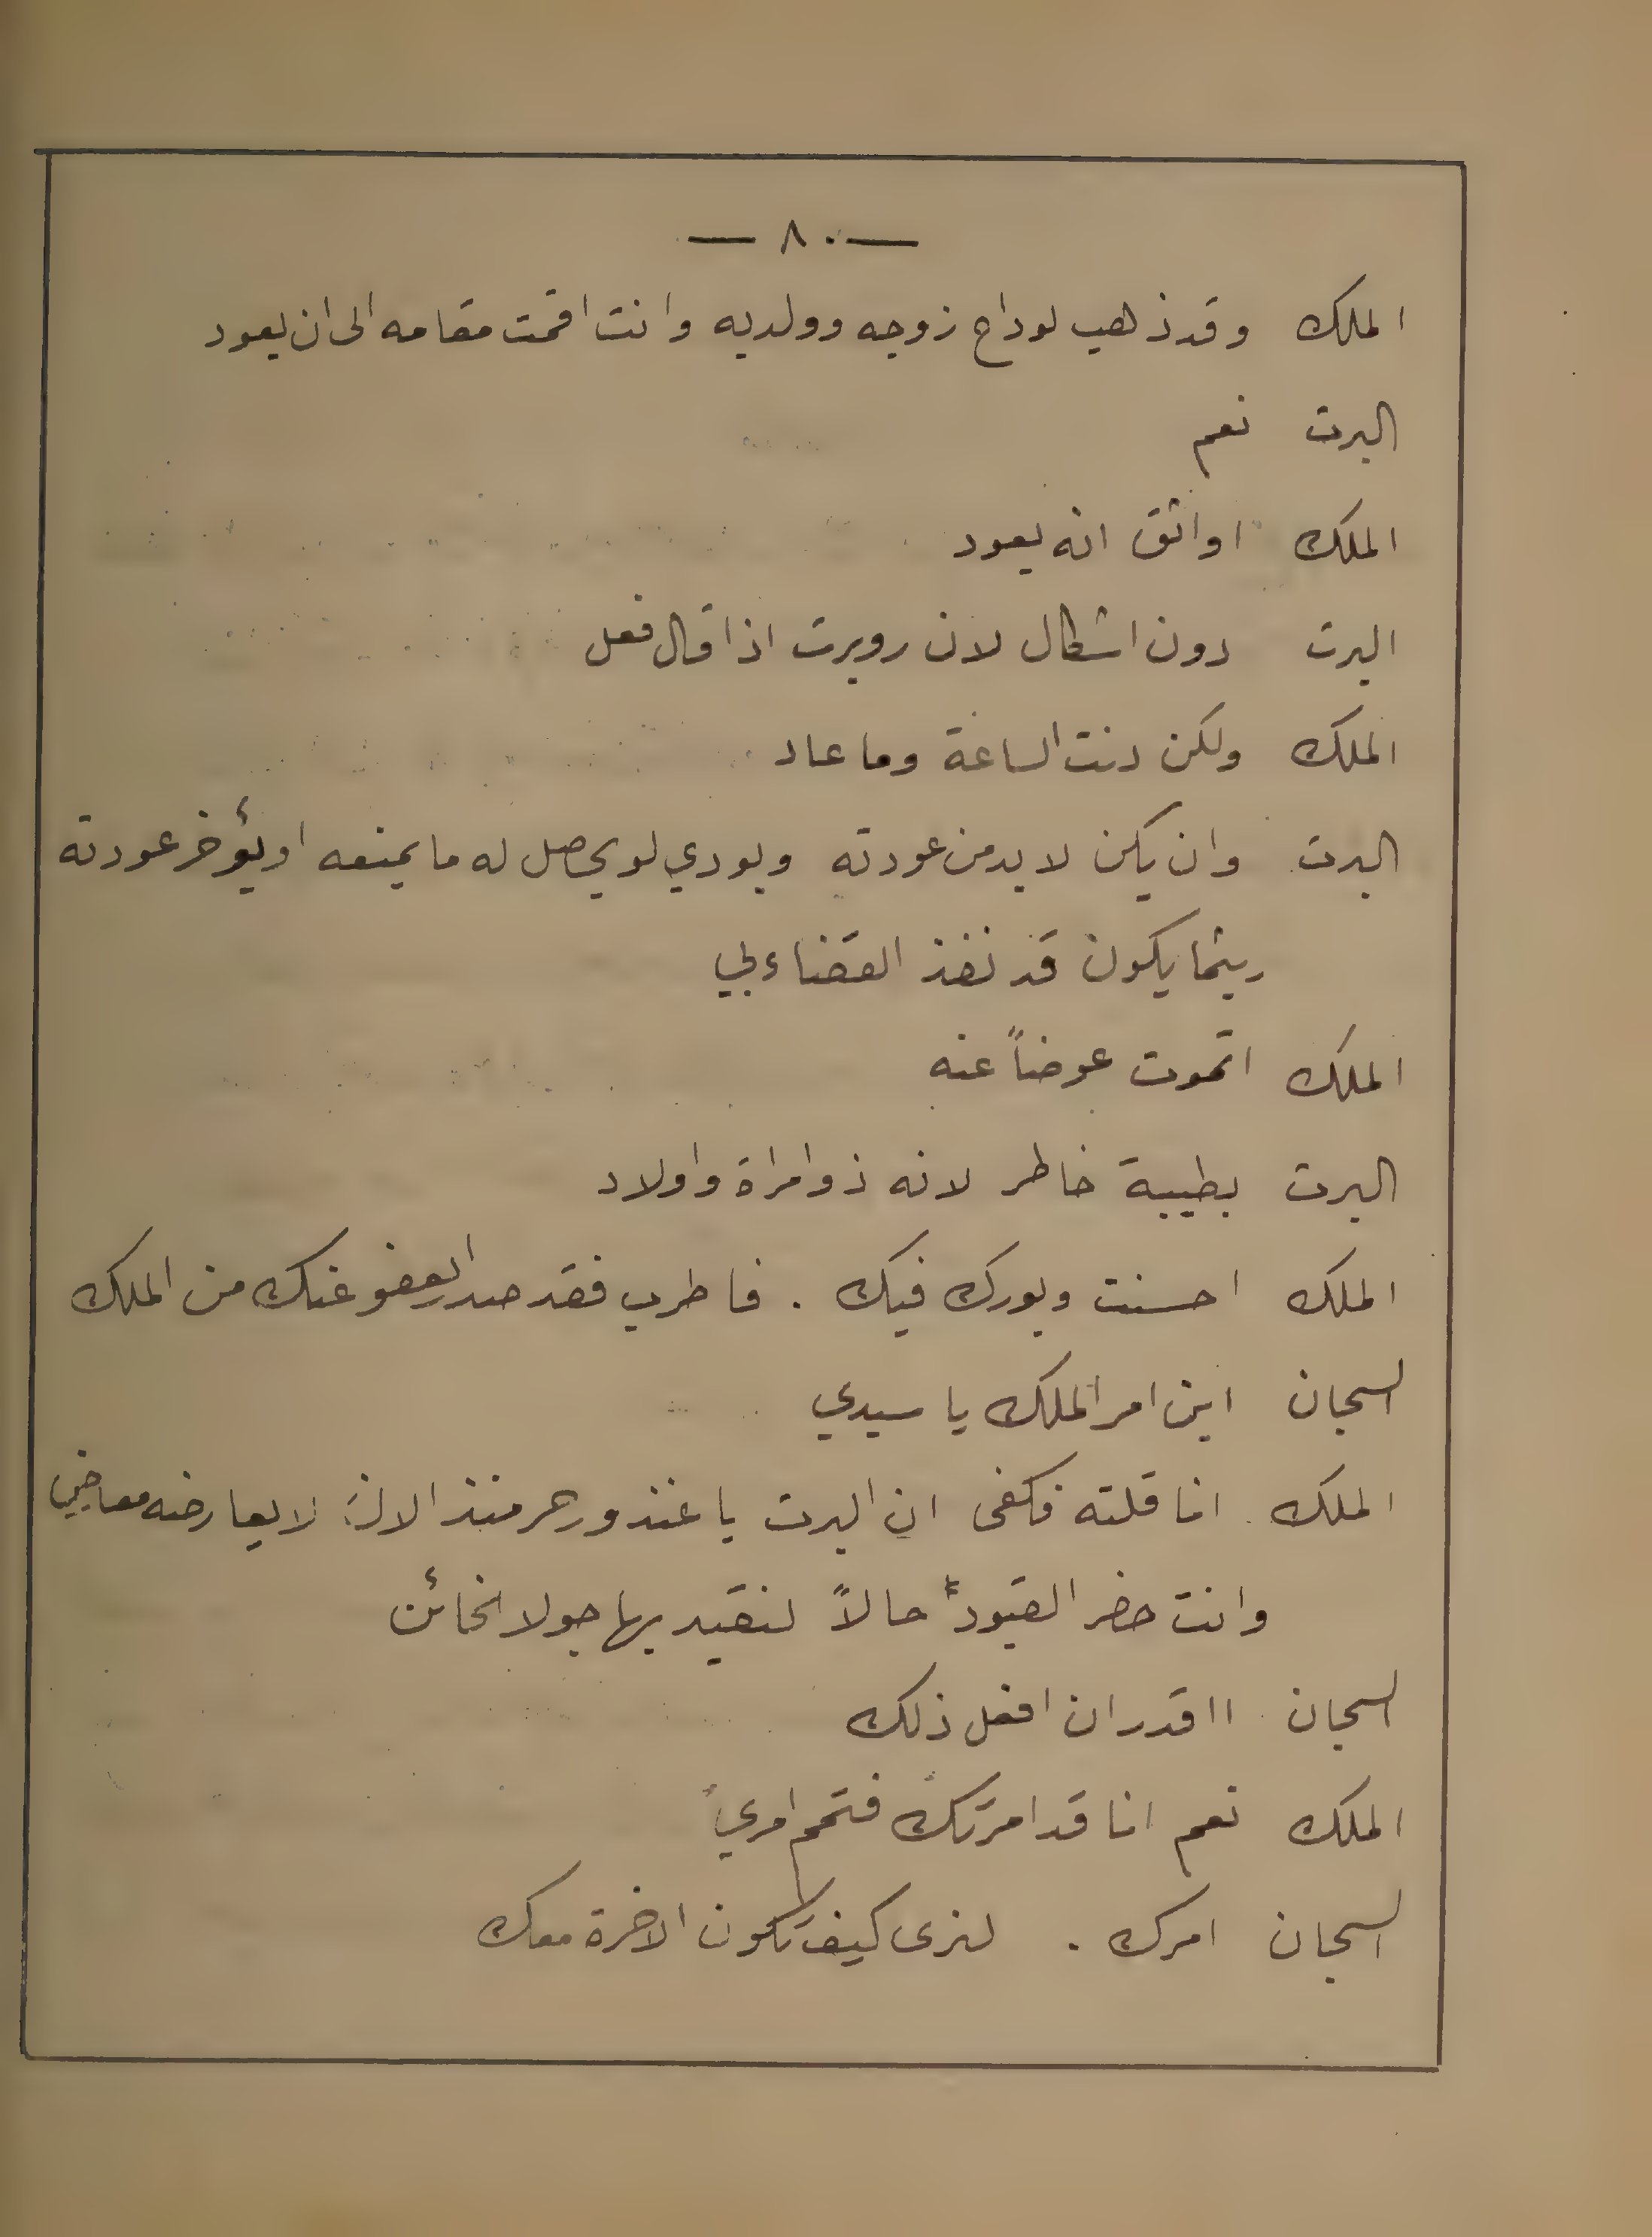 — ٨٠ —
الملك وقد ذهب لوداع زوجه وولديه وانت اقمت مقامه الى ان يعود
البرت نعم
الملك اواثق انه يعود
البرت دون اشكال لان روبرت اذا قال فعل
الملك ولكن دنت الساعة وما عاد
البرت وان يكن لا بد من عودته وبودي لو يحصل له ما يمنعه او يؤخر عودته
ريثما يكون قد نفذ القضاء بي
الملك اتموت عوضاً عنه
البرت بطيبة خاطر لانه ذو امراة واولاد
الملك احسنت وبورك فيك . فاطرب فقد صدر العفو عنك من الملك
السجان اين امر الملك يا سيدي
الملك انا قلته فكفى ان البرت يا غندور حر منذ الان لا يعارضه معارض
وانت حضر القيود حالاً لنقيد بها جولا الخائن
السجان ااقدر ان افعل ذلك
الملك نعم انا قد امرتك فتمم امري
السجان امرك . لنرى كيف تكون الاخرة معك